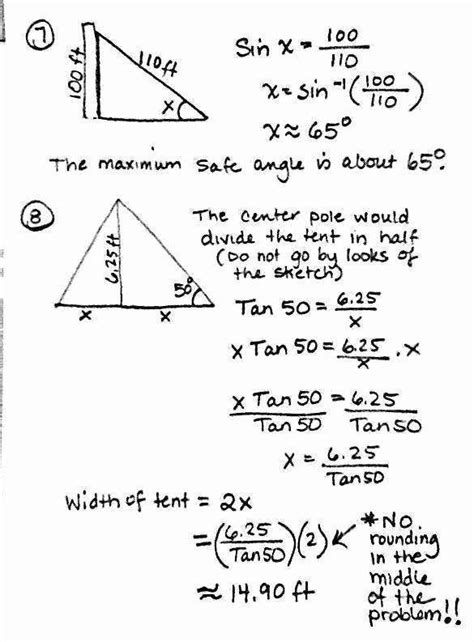 7
100 ft
110 ft
x
Sin x = 100/110
x = sin⁻¹(100/110)
x ≈ 65°
The maximum safe angle is about 65°.
8
6.25 ft
50°
x
x
The center pole would
divide the tent in half
(Do not go by looks of
the sketch)
Tan 50 = 6.25/x
x Tan 50 = 6.25/x · x
x Tan 50/Tan 50 = 6.25/Tan 50
x = 6.25/Tan 50
Width of tent = 2x
= (6.25/Tan 50)(2)
≈ 14.90 ft
*NO
rounding
in the
middle
of the
problem!!